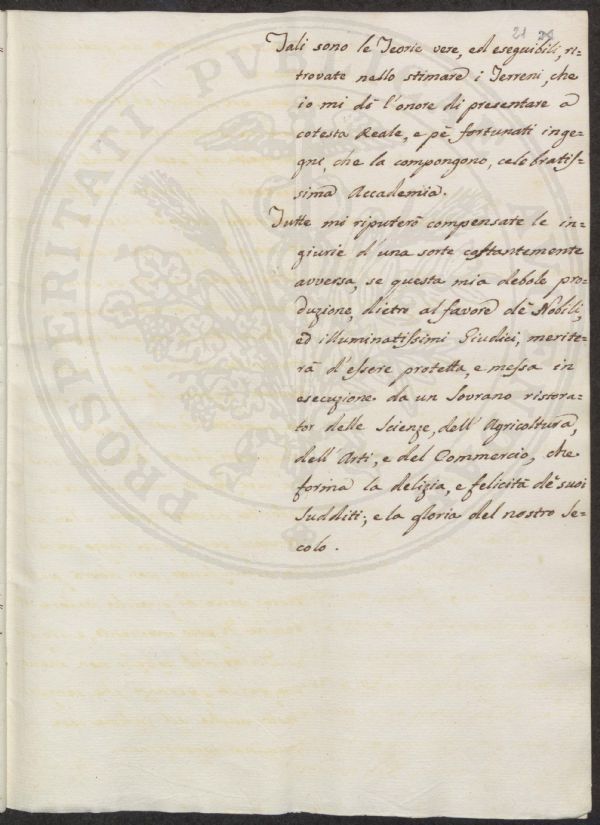 21
Tali sono le Teorie vere, ed eseguibili, ri=
trovate nello stimare i Terreni, che
io mi dò l'onore di presentare a
cotesta Reale, e pe' fortunati inge=
gni, che la compongono, celebratis=
sima Accademia.
Tutte mi riputerò compensate le in=
giurie d'una sorte costantemente
avversa, se questa mia debole pro=
duzione, dietro al favore de' Nobili,
ed illuminatissimi Giudici, merite=
rà d'essere protetta, e messa in
esecuzione da un Sovrano ristora=
tor delle Scienze, dell' Agricoltura,
dell' Arti, e del Commercio, che
forma la delizia, e felicità de' suoi
Sudditi; e la gloria del nostro Se=
colo.
PROSPERITATI PUBLICAE